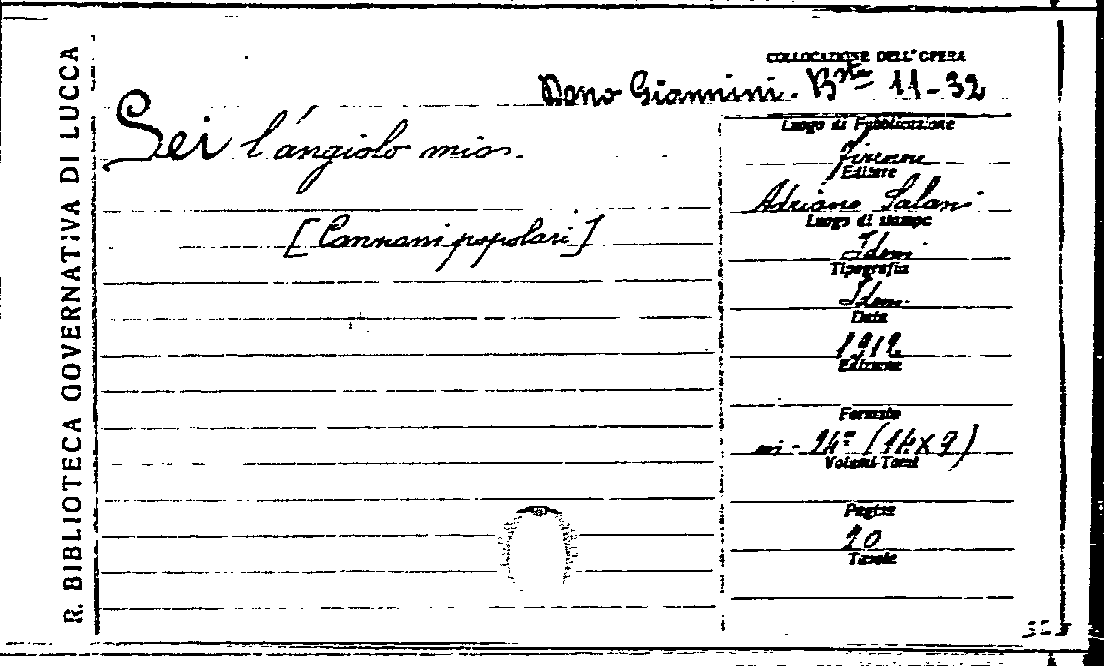 R. BIBLIOTECA GOVERNATIVA DI LUCCA
COLLOCAZIONE DELL'OPERA
Dono Giannini. B.ta 11-32
Sei l'angiolo mio.
[Canzoni popolari]
Luogo di Pubblicazione
Firenze
Editore
Adriano Salani
Luogo di stampa
Idem
Tipografia
Idem
Data
1912
Edizione
Formato
in-24° (14x9)
Volumi-Tomi
Pagine
20
Tavole